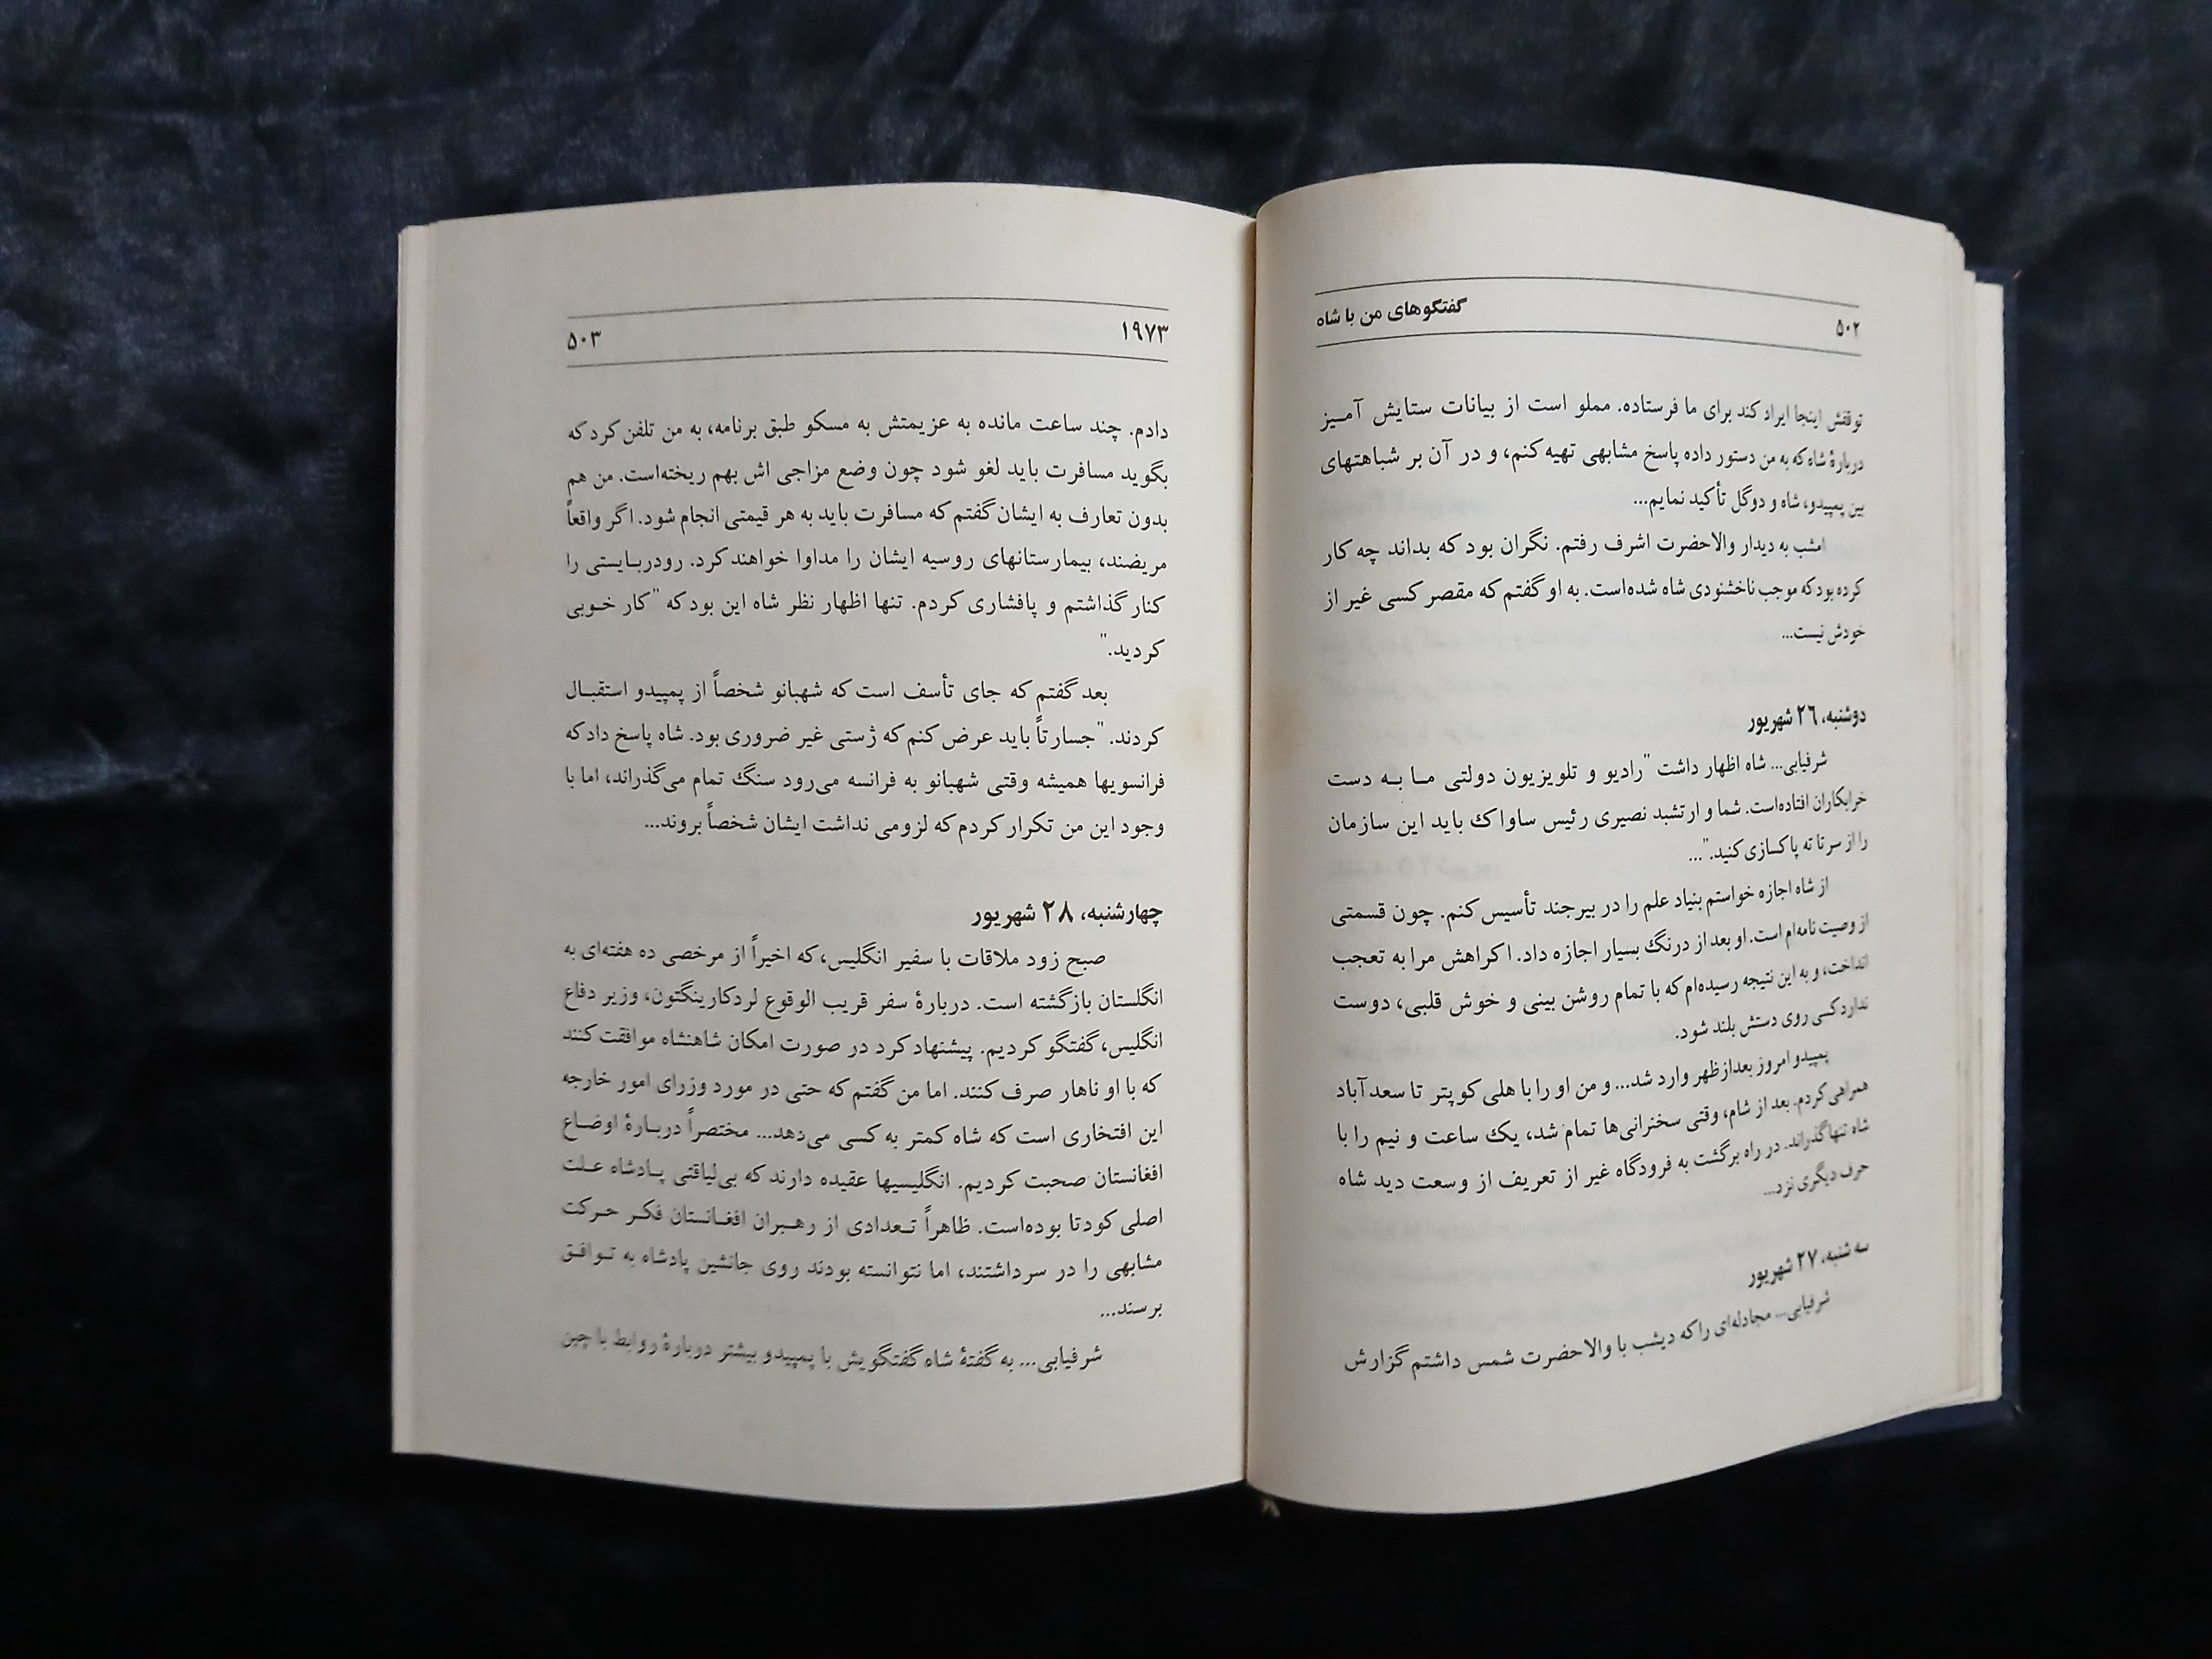 ۵۰۲ گفتگوهای من با شاه
توقفش اینجا ایراد کند برای ما فرستاده. مملو است از بیانات ستایش آمیز
دربارهٔ شاه که به من دستور داده پاسخ مشابهی تهیه کنم، و در آن بر شباهتهای
بین پمپیدو، شاه و دوگل تأکید نمایم...
امشب به دیدار والاحضرت اشرف رفتم. نگران بود که بداند چه کار
کرده بود که موجب ناخشنودی شاه شده‌است. به او گفتم که مقصر کسی غیر از
خودش نیست...
دوشنبه، ۲٦ شهریور
شرفیابی... شاه اظهار داشت "رادیو و تلویزیون دولتی ما به دست
خرابکاران افتاده‌است. شما و ارتشبد نصیری رئیس ساواک باید این سازمان
را از سر تا ته پاکسازی کنید."...
از شاه اجازه خواستم بنیاد علم را در بیرجند تأسیس کنم. چون قسمتی
از وصیت نامه‌ام است. او بعد از درنگ بسیار اجازه داد. اکراهش مرا به تعجب
انداخت، و به این نتیجه رسیده‌ام که با تمام روشن بینی و خوش قلبی، دوست
ندارد کسی روی دستش بلند شود.
پمپیدو امروز بعدازظهر وارد شد... و من او را با هلی کوپتر تا سعدآباد
همراهی کردم. بعد از شام، وقتی سخنرانی‌ها تمام شد، یک ساعت و نیم را با
شاه تنها گذراند. در راه برگشت به فرودگاه غیر از تعریف از وسعت دید شاه
حرف دیگری نزد...
سه شنبه، ۲۷ شهریور
شرفیابی... مجادله‌ای را که دیشب با والاحضرت شمس داشتم گزارش
۱۹۷۳ ۵۰۳
دادم. چند ساعت مانده به عزیمتش به مسکو طبق برنامه، به من تلفن کرد که
بگوید مسافرت باید لغو شود چون وضع مزاجی اش بهم ریخته‌است. من هم
بدون تعارف به ایشان گفتم که مسافرت باید به هر قیمتی انجام شود. اگر واقعاً
مریضند، بیمارستانهای روسیه ایشان را مداوا خواهند کرد. رودربایستی را
کنار گذاشتم و پافشاری کردم. تنها اظهار نظر شاه این بود که "کار خوبی
کردید."
بعد گفتم که جای تأسف است که شهبانو شخصاً از پمپیدو استقبال
کردند. "جسارتاً باید عرض کنم که ژستی غیر ضروری بود. شاه پاسخ داد که
فرانسویها همیشه وقتی شهبانو به فرانسه می‌رود سنگ تمام می‌گذراند، اما با
وجود این من تکرار کردم که لزومی نداشت ایشان شخصاً بروند...
چهارشنبه، ۲۸ شهریور
صبح زود ملاقات با سفیر انگلیس، که اخیراً از مرخصی ده هفته‌ای به
انگلستان بازگشته است. دربارهٔ سفر قریب الوقوع لردکارینگتون، وزیر دفاع
انگلیس، گفتگو کردیم. پیشنهاد کرد در صورت امکان شاهنشاه موافقت کنند
که با او ناهار صرف کنند. اما من گفتم که حتی در مورد وزرای امور خارجه
این افتخاری است که شاه کمتر به کسی می‌دهد... مختصراً دربارهٔ اوضاع
افغانستان صحبت کردیم. انگلیسیها عقیده دارند که بی‌لیاقتی پادشاه علت
اصلی کودتا بوده‌است. ظاهراً تعدادی از رهبران افغانستان فکر حرکت
مشابهی را در سرداشتند، اما نتوانسته بودند روی جانشین پادشاه به توافق
برسند...
شرفیابی... به گفتهٔ شاه گفتگویش با پمپیدو بیشتر دربارهٔ روابط با چین